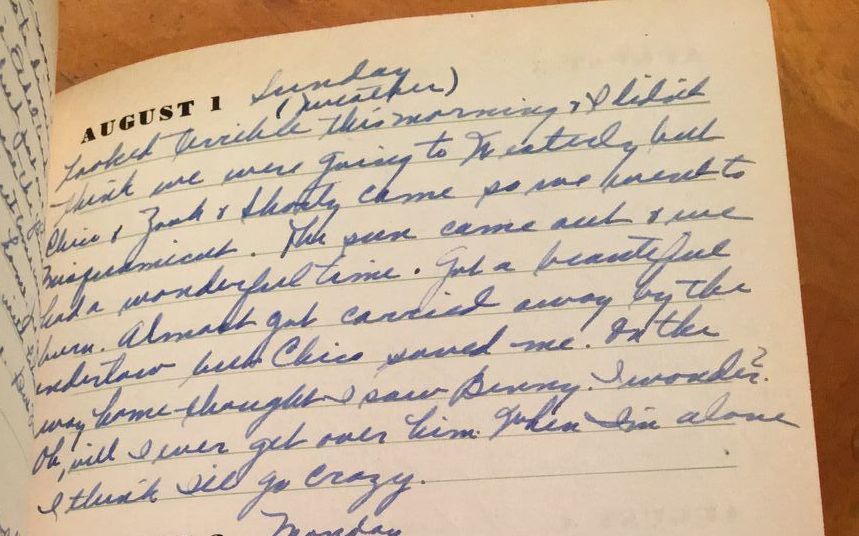 AUGUST 1 Sunday
(weather)
Looked terrible this morning & I didn't
think we were going to Westerly but
Chico & Zook & Shorty came so we went to
Misquamicut. The sun came out & we
had a wonderful time. Got a beautiful
burn. Almost got carried away by the
undertow but Chico saved me. On the
way home thought I saw Benny. I wonder?
Oh, will I ever get over him. When I'm alone
I think I'll go crazy.
Monday